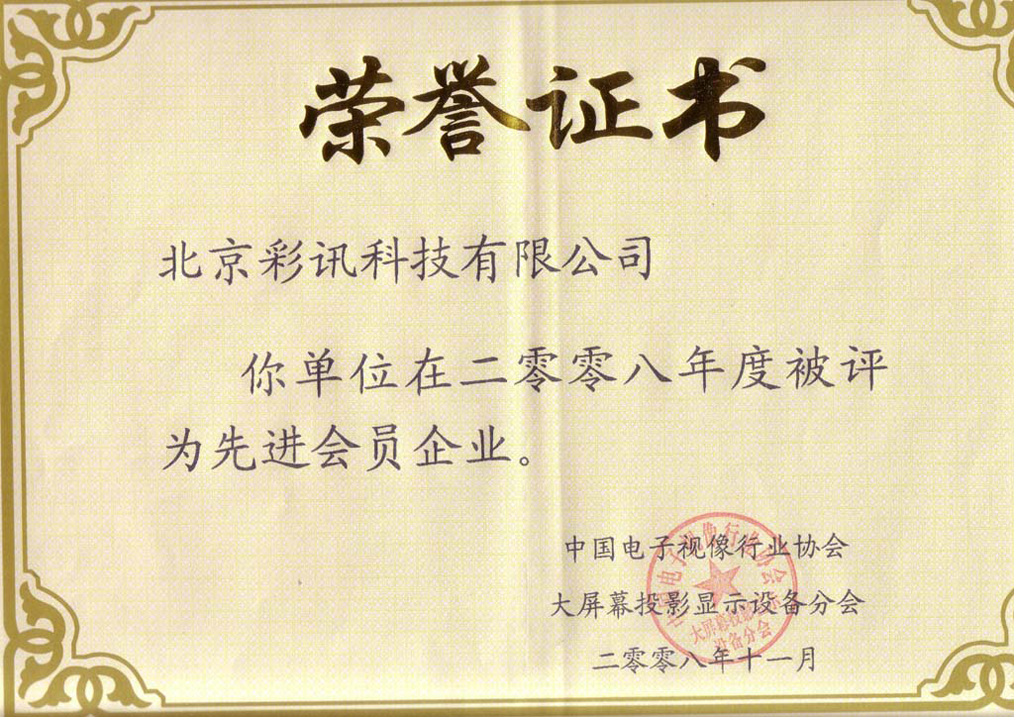 荣誉证书
北京彩讯科技有限公司
你单位在二零零八年度被评
为先进会员企业。
中国电子视像行业协会
大屏幕投影显示设备分会
二零零八年十一月